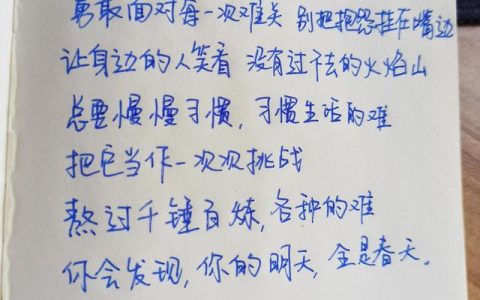 勇敢面对每一次难关 别把抱怨挂在嘴边
让身边的人笑看 没有过不去的火焰山
总要慢慢习惯,习惯生活的难
把它当作一次次挑战
熬过千锤百炼,各种的难
你会发现,你的明天,全是春天。